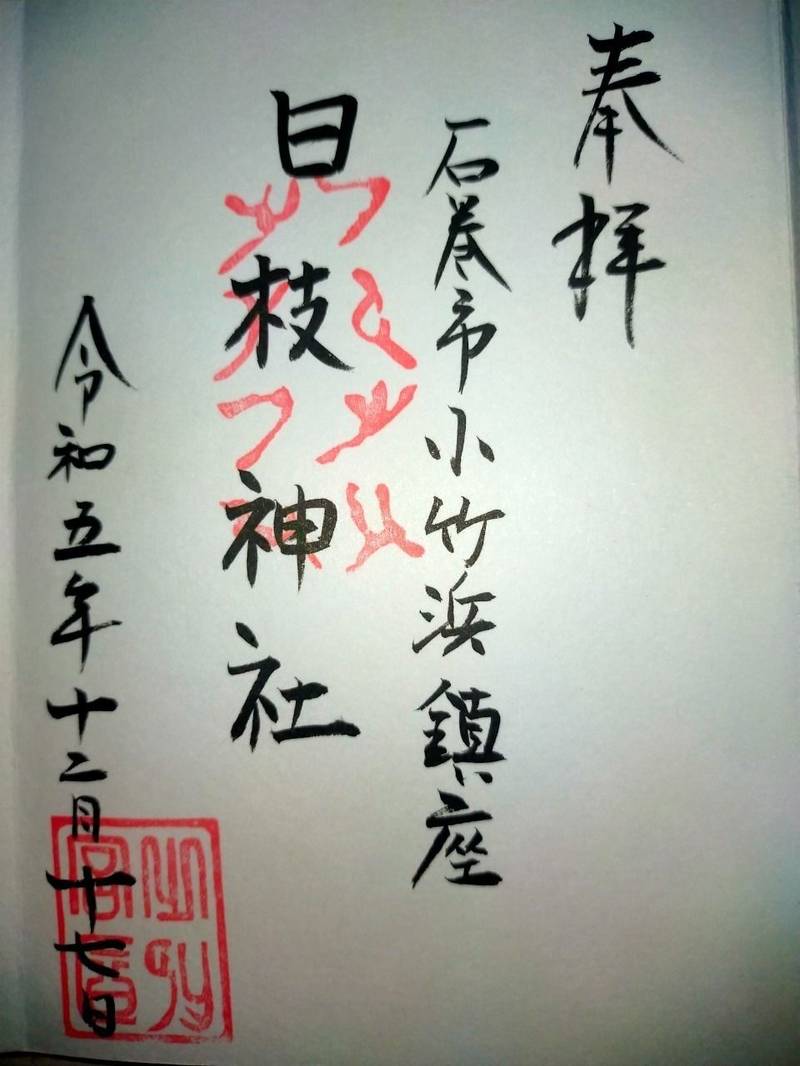 奉拝
石巻市小竹浜鎮座
日枝神社
令和五年十二月十七日